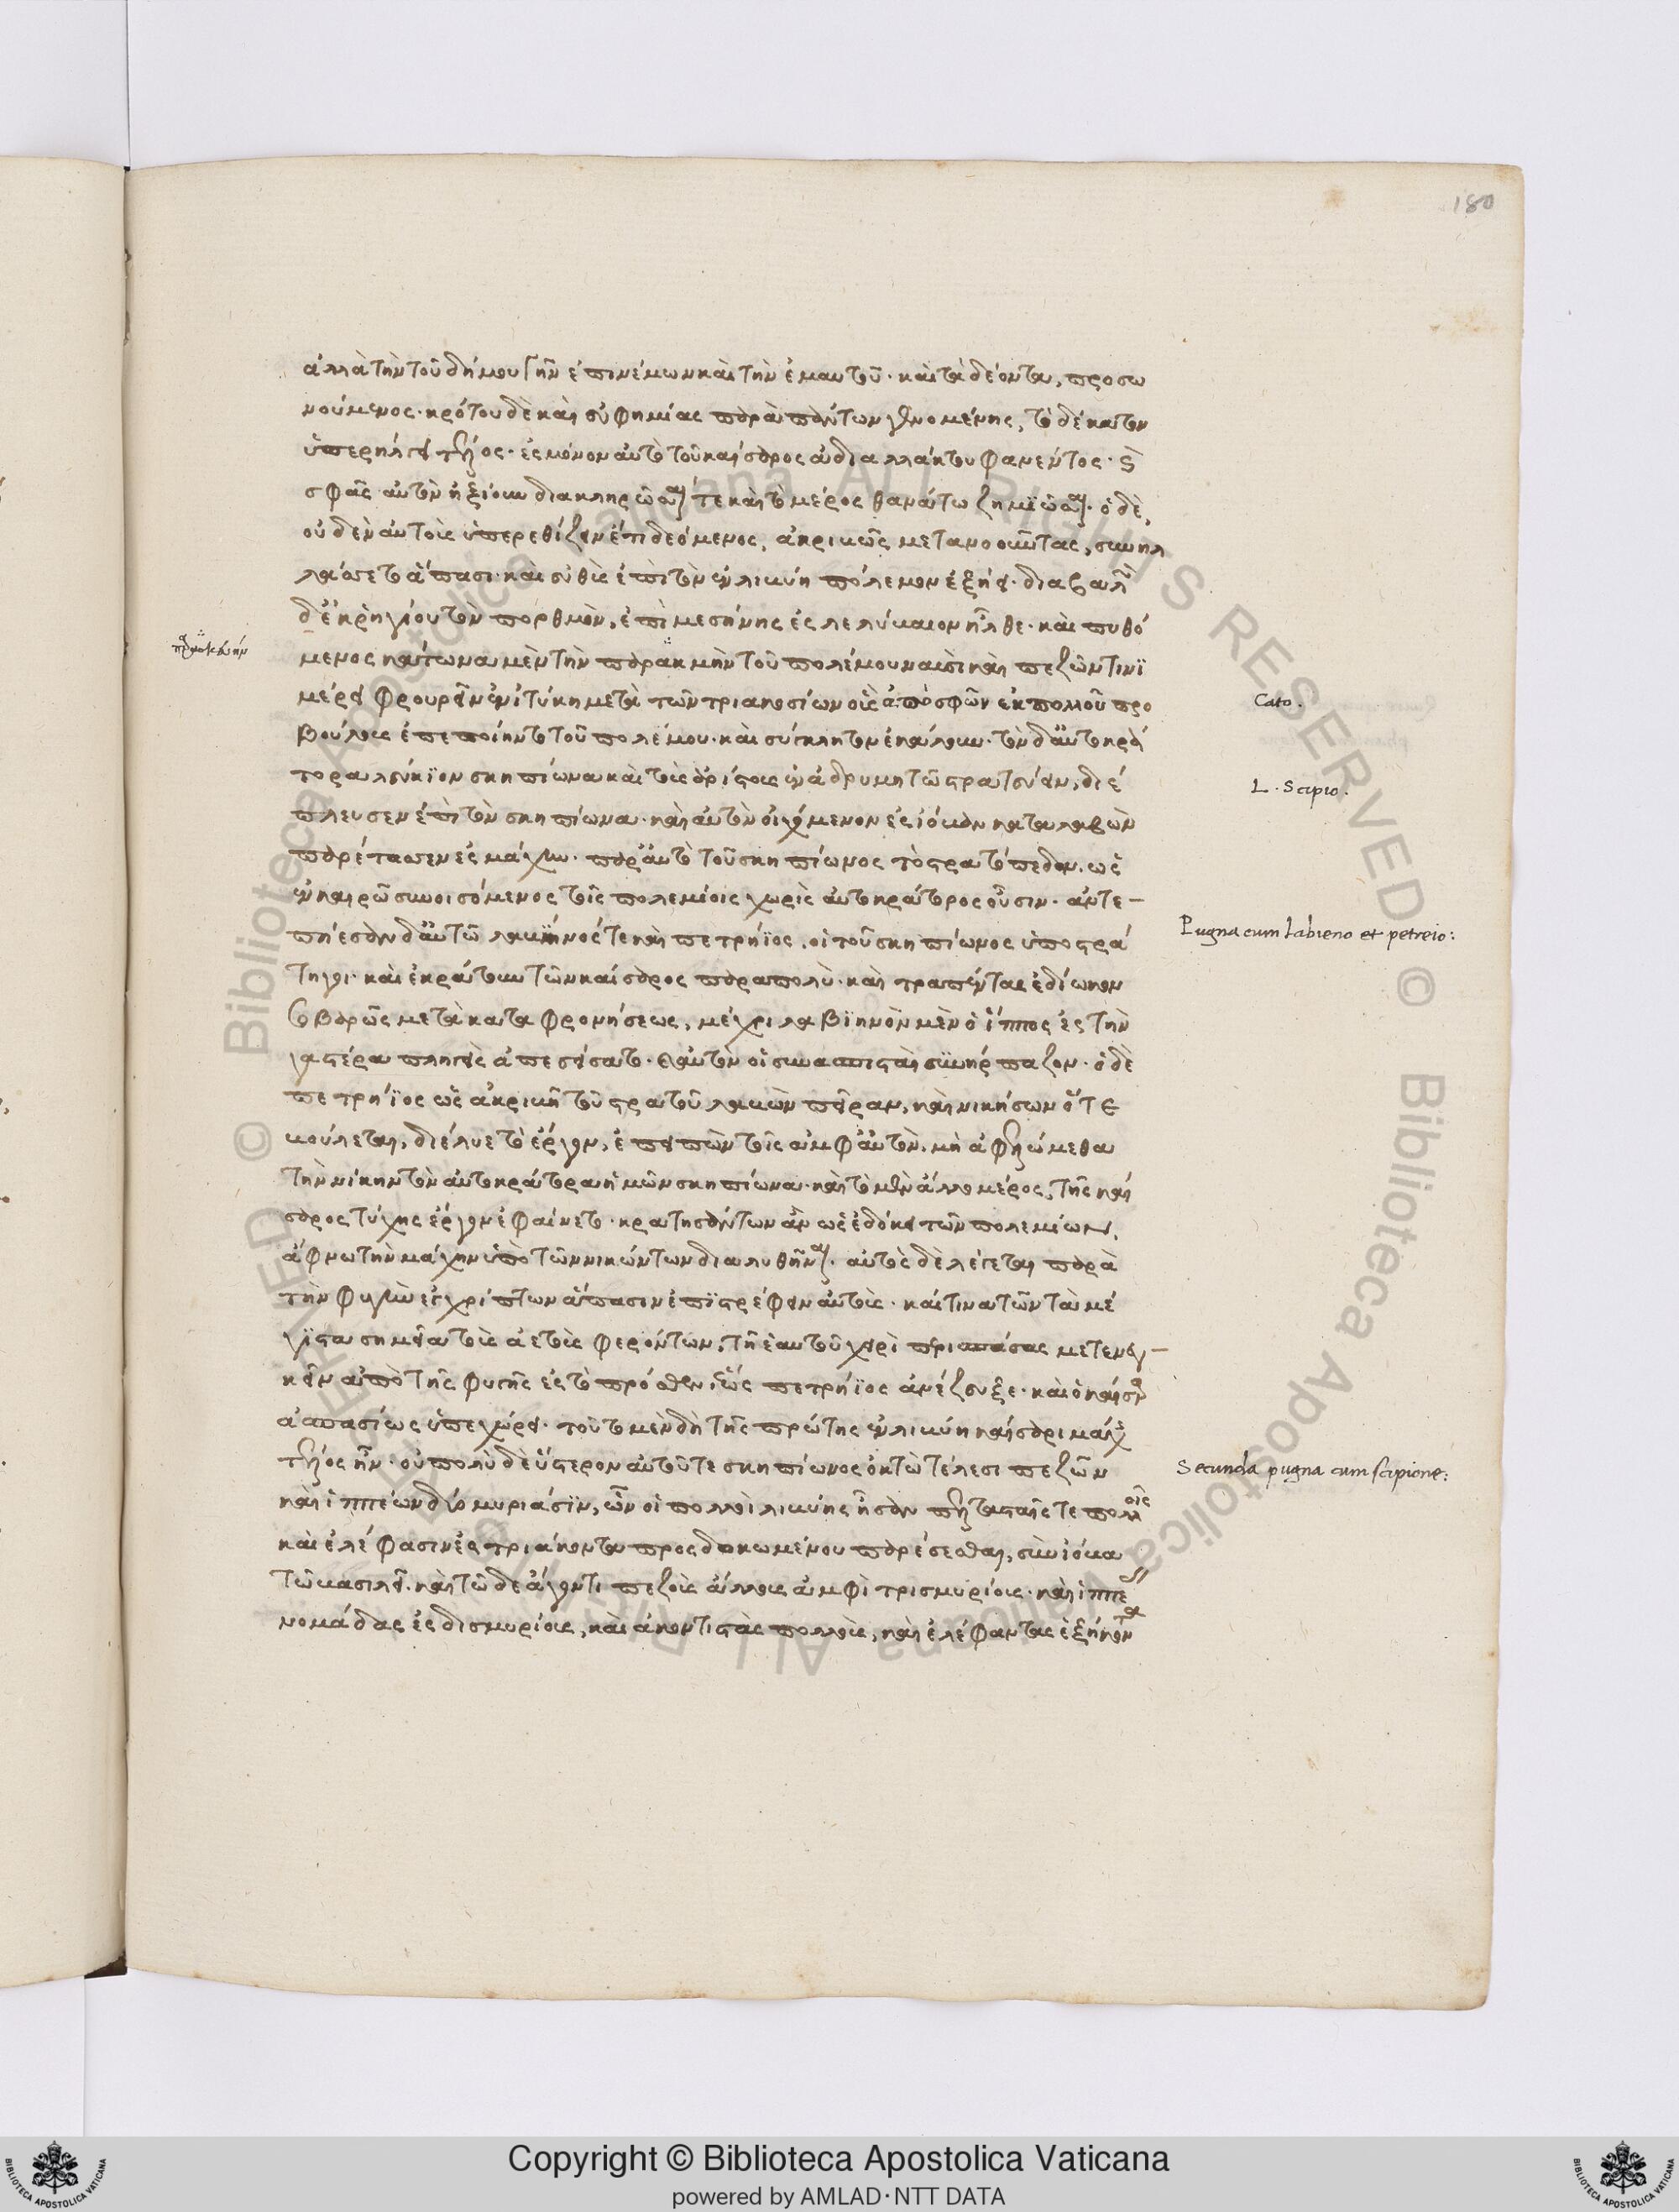 ἀλλὰ τὴν τοῦ δήμου γῆν ἐπινέμων καὶ τὴν ἐμαυτοῦ· καὶ τὰ δέοντα, προσω
νούμενος· κρότου δὲ καὶ εὐφημίας παρὰ πάντων γενομένης, τὸ δέκατον
ὑπερήλγει τέλος· ἐς μόνον αὐτὸ τοῦ καίσαρος ἀδιαλλάκτου φανέντος· καὶ
σφᾶς αὐτὸν ἠξίουν διακληρῶσαί τε καὶ τὸ μέρος θανάτω ζημιῶσαι· ὁ δὲ,
οὐδὲν αὐτοὺς ὑπερεθίζειν ἔτι δεόμενος, ἀκριβῶς μετανοοῦντας, συνηλ
λάσσετο ἅπασι· καὶ εὐθὺς ἐπὶ τὸν ἐν λιβύη πόλεμον ἐξήει· διαβαλὼν
δ' ἐκ ῥηγίου τὸν πορθμὸν, ἐπὶ μεσήνης ἐς λελύβαιον ἦλθε· καὶ πυθό
μενος κάτωνα μὲν τὴν παρακμὴν τοῦ πολέμου ναυσὶ καὶ πεζῶν τινὶ
μέρει φρουρεῖν ἐν ἰτύκη μετὰ τῶν τριακοσίων οὓς ἀπὸ σφῶν ἐκ πολλοῦ προ
βούλους ἐπεποίηντο τοῦ πολέμου· καὶ σύγκλητον ἐκάλουν· τὸν δ' αὐτοκρά
τορα λεύκιον σκηπίωνα καὶ τοὺς ἀρίστους ἐν ἀδρυμητῶ στρατεύειν, διέ
πλευσεν ἐπὶ τὸν σκηπίωνα· καὶ αὐτὸν οἰχόμενον ἐς ἰόβαν καταλαβὼν
παρέτασσεν ἐς μάχην· παρ' αὐτὸ τοῦ σκηπίωνος τὸ στρατόπεδον. ὡς
ἐν καιρῶ συνοισόμενος τοῖς πολεμίοις χωρὶς αὐτοκράτορος οὖσιν· ἀντε-
πήεσαν δ' αὐτῶ λαβιηνός τε καὶ πετρήϊος. οἱ τοῦ σκηπίωνος ὑποστρά
τηγοι· καὶ ἐκράτουν τῶν καίσαρος παραπολὺ· καὶ τραπέντας ἐδίωκον
σοβαρῶς μετὰ καταφρονήσεως, μέχρι λαβιηνὸν μὲν ὁ ἵππος ἐς τὴν
γαστέρα πληγεὶς ἀπεσείσατο· καὶ αὐτὸν οἱ συνασπισταὶ συνήρπαζον· ὁ δὲ
πετρήϊος ὡς ἀκριβῆ τοῦ στρατοῦ λαβὼν πεῖραν, καὶ νικήσων ὅτε
βούλεται, διέλυε τὸ ἔργον, ἐπειπὼν τοῖς ἀμφ' αὐτὸν. μὴ ἀφελώμεθα
τὴν νίκην τὸν αὐτοκράτορα ἡμῶν σκηπίωνα· καὶ τὸ μὲν ἄλλο μέρος, τῆς καί
σαρος τύχης ἔργον ἐφαίνετο· κρατησάντων ἂν ὡς ἐδόκει τῶν πολεμίων,
ἄφνω τὴν μάχην ὑπὸ τῶν νικώντων διαλυθῆναι· αὐτὸς δὲ λέγεται παρὰ
τὴν φυγὴν ἐγχρίπτων ἅπασιν ἐπιστρέφειν αὐτοὺς· καί τινα τῶν τὰ μέ
γιστα σημεῖα τοὺς ἀετοὺς φερόντων, τῆ ἑαυτοῦ χειρὶ περισπάσας μετενεγ-
κεῖν ἀπὸ τῆς φυγῆς ἐς τὸ πρόσθεν, ἕως πετρήϊος ἀνέζευξε· καὶ ὁ καῖσαρ
ἀσπασίως ὑπεχώρει· τοῦτο μὲν δὴ τῆς πρώτης ἐν λιβύη καίσαρι μάχης
τέλος ἦν· οὐ πολὺ δὲ ὕστερον αὐτοῦ τε σκηπίωνος ὀκτὼ τέλεσι πεζῶν
καὶ ἱππέων δύο μυριάσιν, ὧν οἱ πολλοὶ λιβύης ἦσαν πελτασταῖς τε πολλοῖς
καὶ ἐλέφασιν ἐς τριάκοντα προσδοκωμένου παρέσεσθαι, σὺν ἰόβα
τῶ βασιλεῖ. καὶ τῶδε ἄγοντι πεζοὺς ἄλλους ἀμφὶ τρισμυρίους· καὶ ἱππέας
νομάδας ἐς δισμυρίους, καὶ ἀκοντιστὰς πολλοὺς, καὶ ἐλέφαντας ἑξήκοντα
Cato.
L. Scipio.
Pugna cum Labieno et petreio:
Secunda pugna cum scipione:
180
Copyright © Biblioteca Apostolica Vaticana
powered by AMLAD·NTT DATA